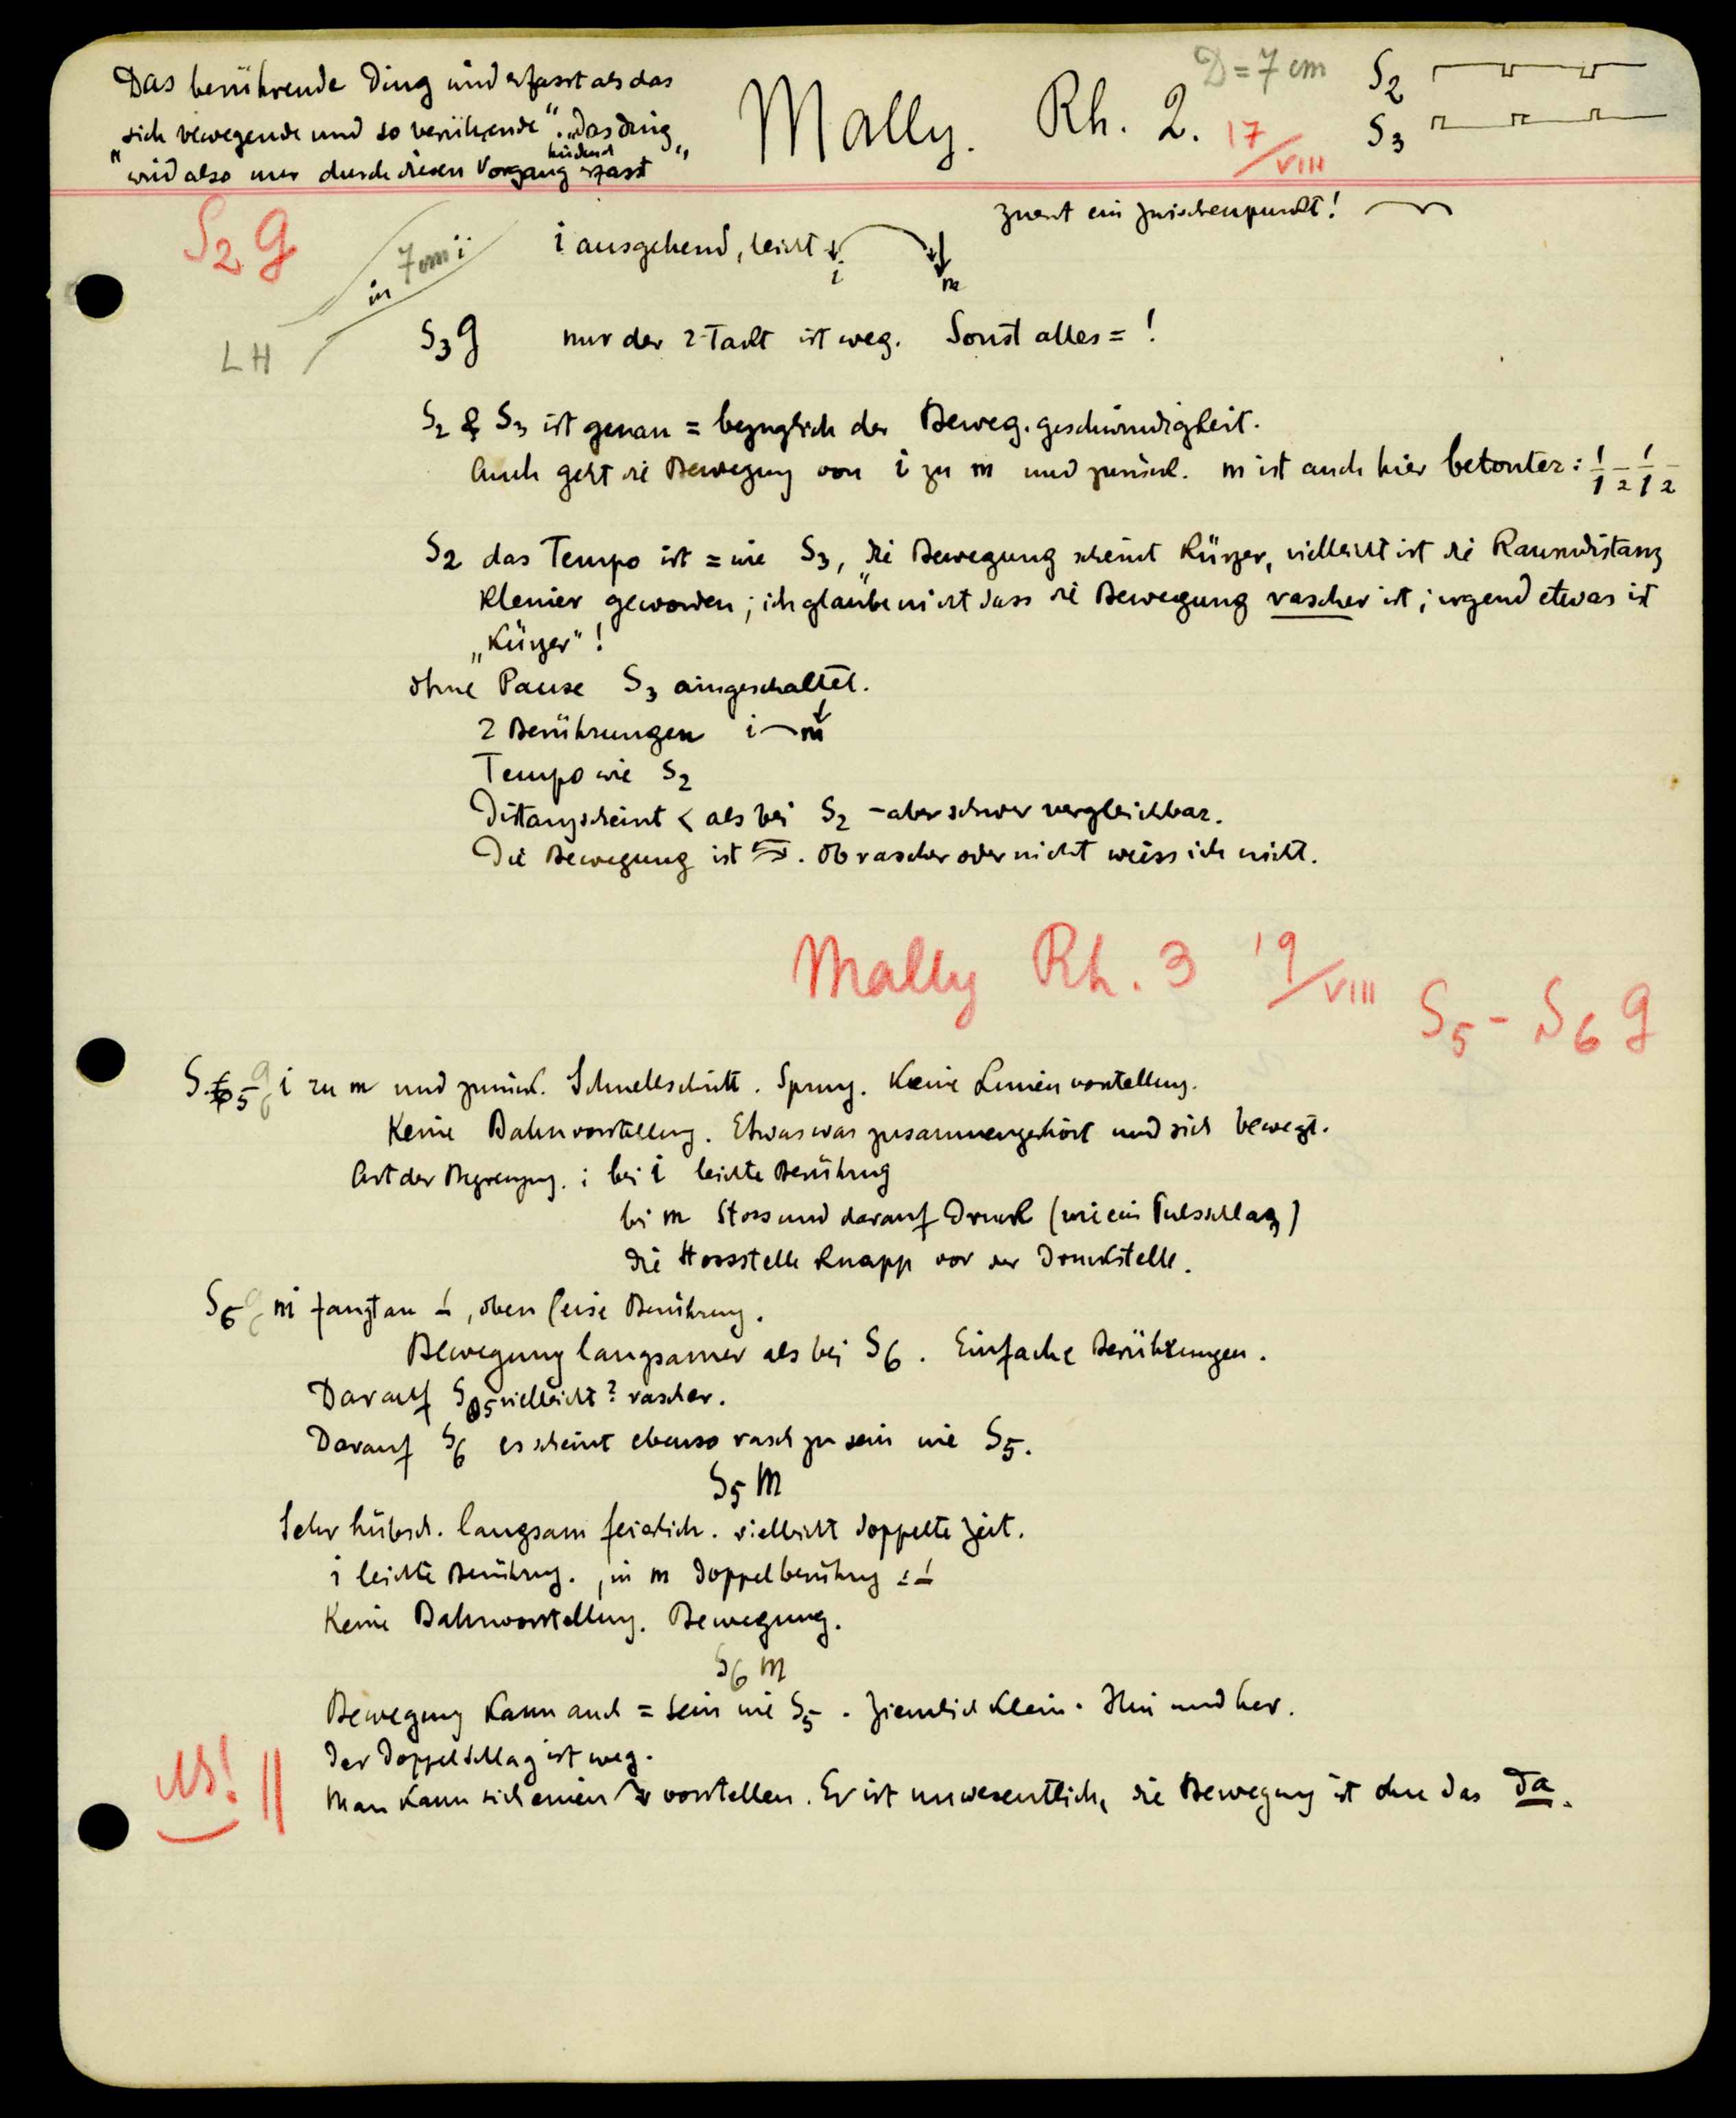 Das berührende Ding wird erfasst als das
"sich bewegende und so berührende". "Das Ding
wird also nur durch diesen Vorgang erfasst"
Mally. Rh. 2. 17/VIII
D = 7 cm
S2
S3
zuerst ein Zwischenpunkt!
S2 g
in 7 cm i
LH
i ausgehend, leicht i m
S3 g nur der 2-Takt ist weg. Sonst alles = !
S2 & S3 ist genau = bezüglich der Beweg. geschwindigkeit.
Auch geht die Bewegung von i zu m und zurück. m ist auch hier betonter: 1 2 1 2
S2 das Tempo ist = wie S3, "die Bewegung scheint kürzer, vielleicht ist die Raumdistanz
kleiner geworden; ich glaube nicht dass die Bewegung rascher ist; irgend etwas ist
„kürzer"!
ohne Pause S3 eingeschaltet.
2 Berührungen i m
Tempo wie S2
Distanz scheint < als bei S2 - aber schwer vergleichbar.
Die Bewegung ist . Ob rascher oder nicht weiss ich nicht.
Mally Rh. 3 19/VIII S5 - S6 g
S5 g i zu m und zurück. Schnellschritt. Sprung. Keine Linienvorstellung.
Keine Bahnvorstellung. Etwas was zusammengehört und sich bewegt.
Art der Begrenzung: bei i leichte Berührung
bei m Stoss und darauf Druck (wie ein Pulsschlag)
die Stossstelle knapp vor der Druckstelle.
S6 g m fangt an, oben leise Berührung.
Bewegung langsamer als bei S6. Einfache Berührungen.
Darauf S5 vielleicht? rascher.
Darauf S6 es scheint ebenso rasch zu sein wie S5.
S5 M
Sehr hübsch. langsam feierlich. vielleicht doppelte Zeit.
i leichte Berührung., in m Doppelberührung
Keine Bahnvorstellung. Bewegung.
S6 M
Bewegung kann auch = sein wie S5. Ziemlich klein. Hin und her.
Der Doppelschlag ist weg.
NB! || Man kann sich einen vorstellen. Er ist unwesentlich, die Bewegung ist ohne das da.